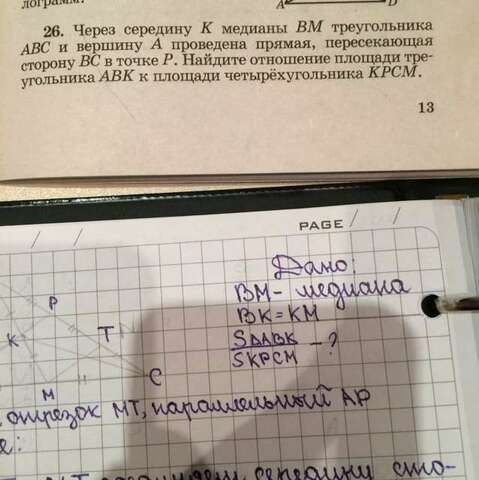 лограмм.
A D
26. Через середину K медианы BM треугольника
ABC и вершину A проведена прямая, пересекающая
сторону BC в точке P. Найдите отношение площади тре-
угольника ABK к площади четырёхугольника KPCM.
13
PAGE
Дано:
BM - медиана
BK = KM
S∆ABK
SKPCM - ?
P
K T
C
M
отрезок MT, параллельный AP
е:
середину сто-